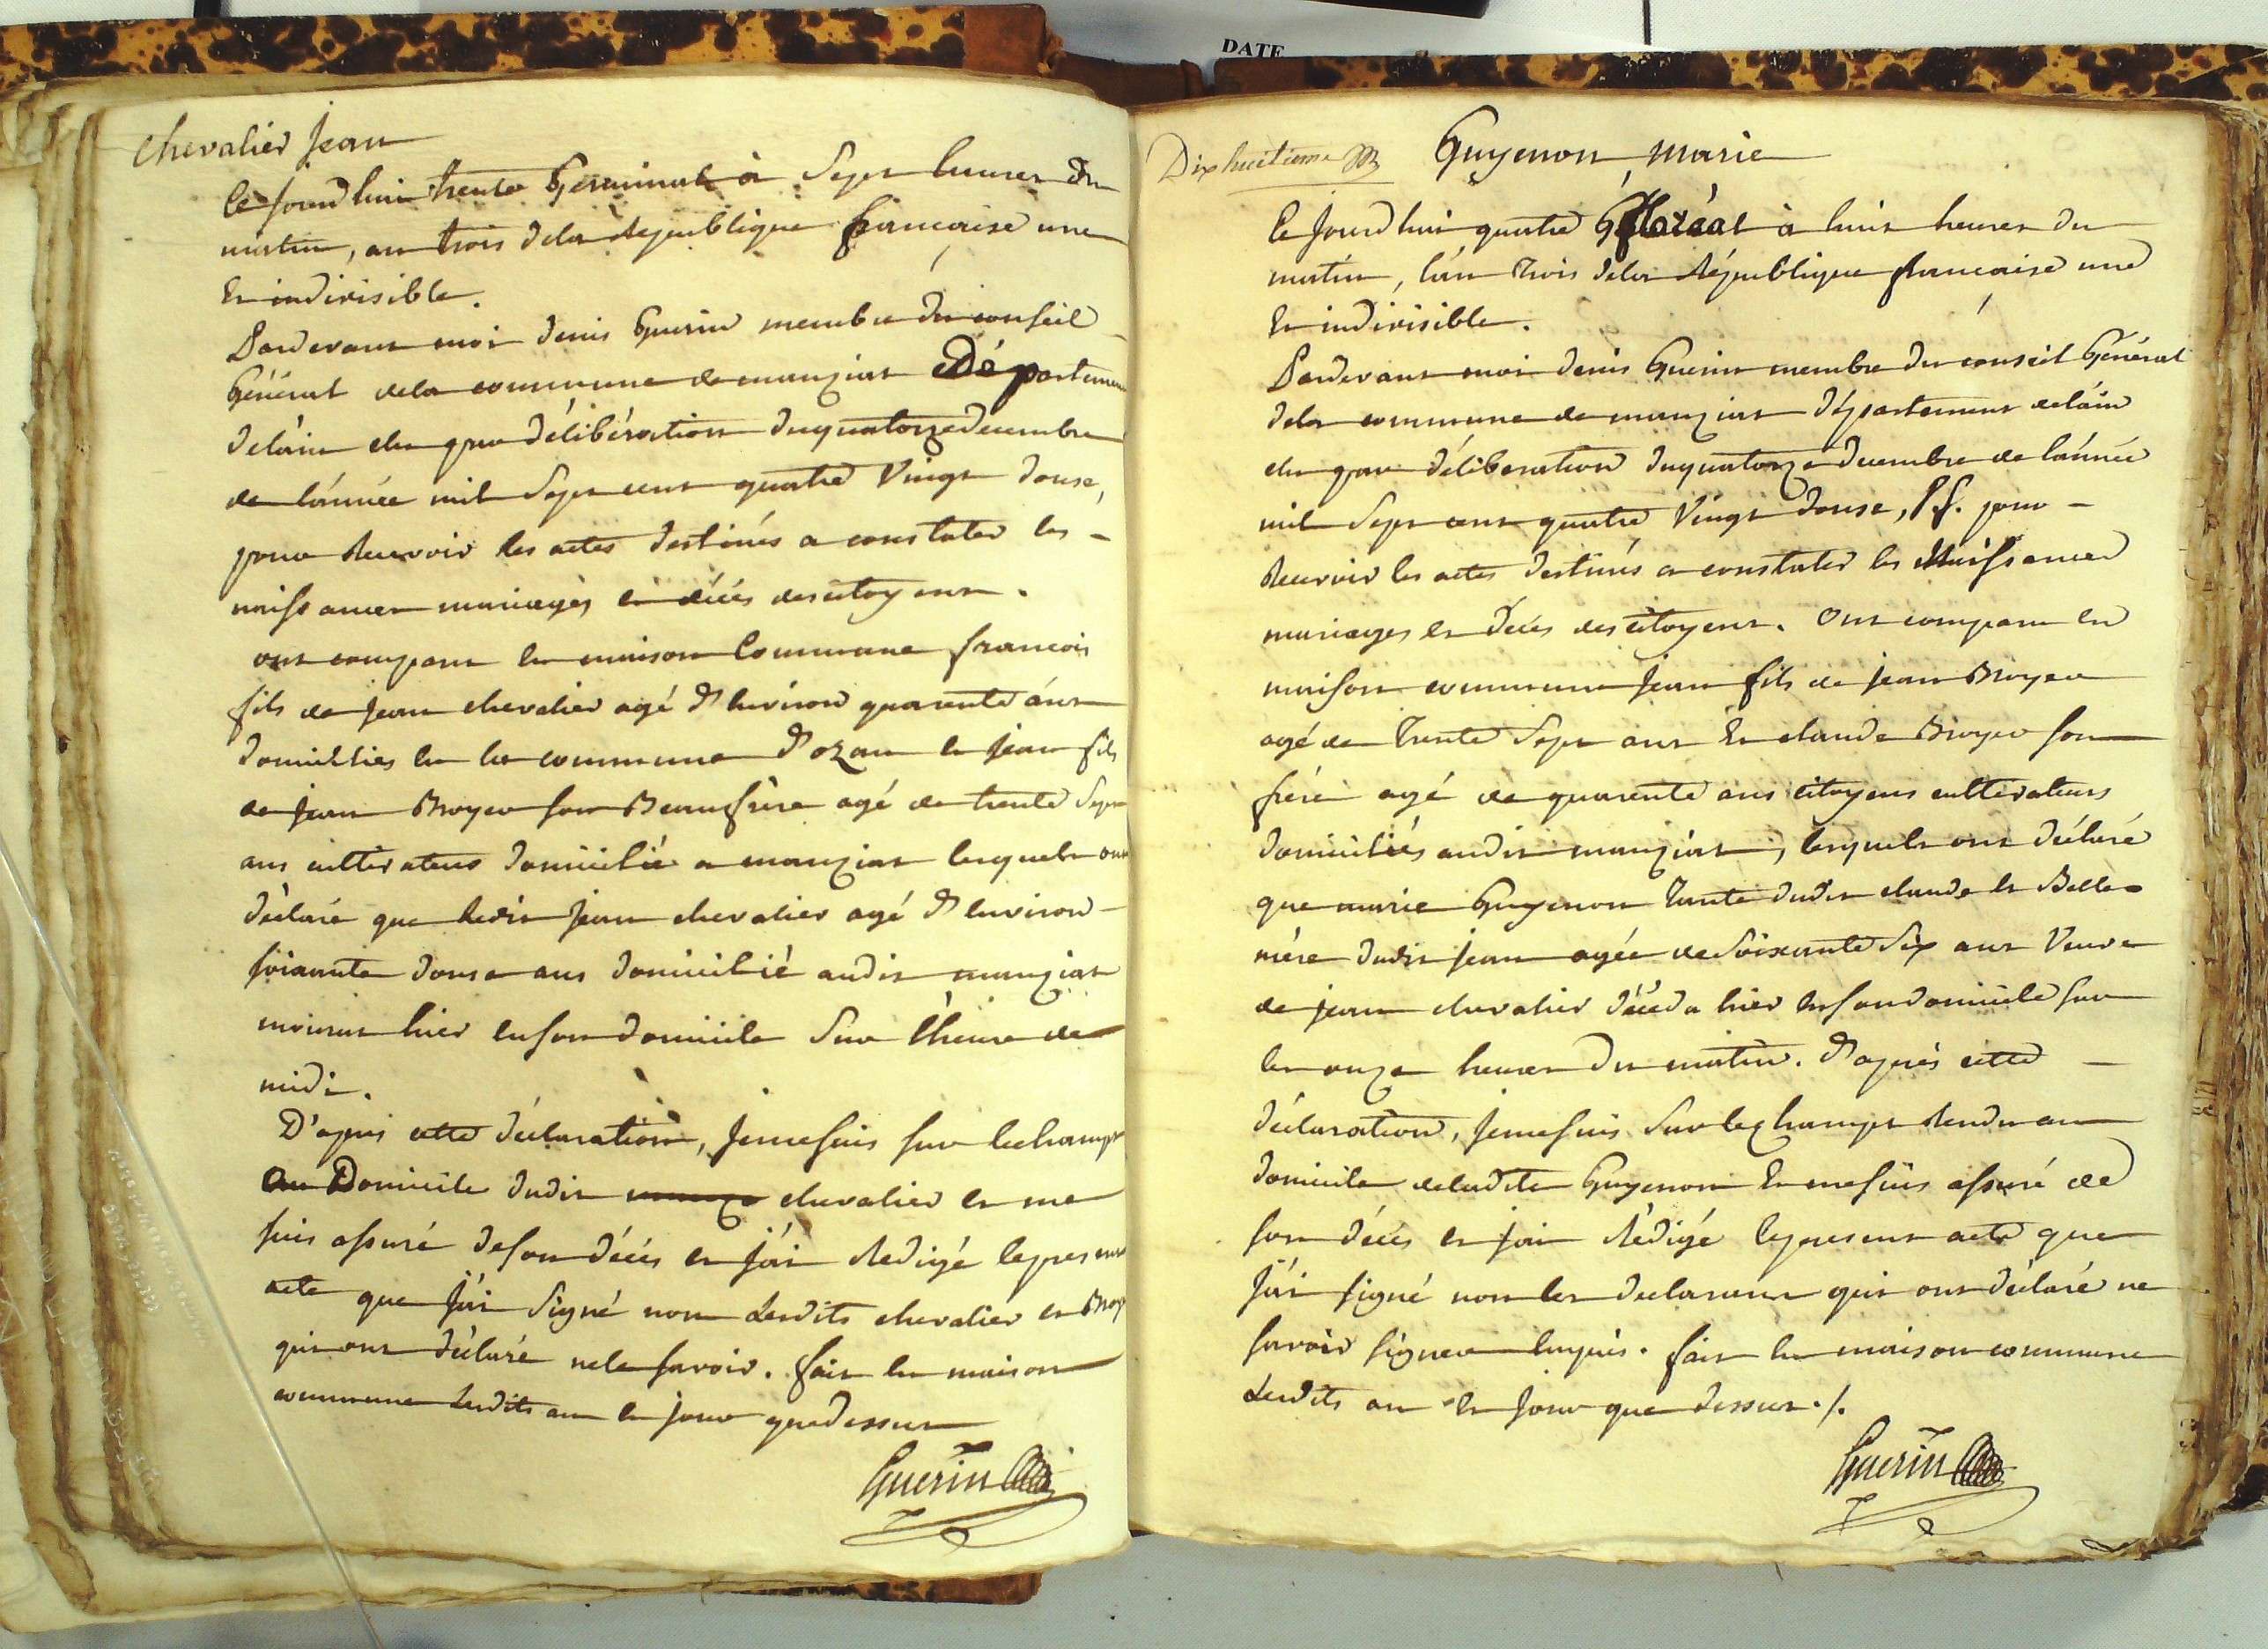 DATE
Chevalier Jean
Ce jourdhui trente Germinal à Sept heures du
matin, an trois dela République francaise une
Et indivisible.
Pardevant moi denis Guerin membre du conseil
Général dela commune de manziat Département
delàin élu par délibération duquatorze decembre
de lánnée mil Sept cent quatre Vingt douse,
pour Recevoir les actes destinés a constater les -
naissances mariages et décés descitoyens.
ont comparu en maison Commune francois
fils de Jean chevalier agé d'Environ quarente áns
domicilies en la commune d'ozan et Jean fils
de Jean Broyer son Beaufrère agé de trente Sept
ans cultivateurs domicilié a manziat lesquels ont
déclaré que Ledit Jean chevalier agé d'Environ -
soixante douse ans domicilié audit manziat
mourut hier enson domicile Sur l'heure de
midi.
D'aprés cette déclaration, Jemesuis sur lechamp
au Domicile dudit chevalier et me
suis assuré deson décés et j'ái Redigé lepresent
acte que j'ái Signé non Lesdits chevalier et Broy
qui ont déclaré nele savoir. fait en maison
commune Lesdits an et jour quedessus
Guerin
Dixhuitieme
Guyenon Marie
Ce Jourdhui quatre floréal à huit heures du
matin, l'án trois dela République francaise une
Et indivisible.
Pardevant moi denis Guerin membre du conseil Général
dela commune de manziat département delàin
élu par déliberation duquatorze decembre de lánnée
mil Sept cent quatre Vingt douse, V.S. pour -
Recevoir les actes destinés a constater les Naissances
mariages et decés des citoyens. Ont comparu en
maison commune Jean fils de Jean Broyer
agé de trente Sept ans Et claude Broyer son
frére agé de quarente ans citoyens cultivateurs
domiciliés audit manziat, lesquels ont déclaré
que marie Guyenon tante dudit claude et Belle-
mére dudit Jean agée de soixante Six ans Veuve
de Jean chevalier décéda hier enson domicile sur
les onze heures du matin. d'aprés cette -
déclaration, Jemesuis Sur lechamps Rendu au
domicile deladite Guyenon Et mesuis assuré de
son décés et j'ai Rédigé lepresent acte que
J'ái signé non les declarants qui ont déclaré ne
savoir signer Enquis. fait en maison commune
Lesdits an et Jour que dessus./.
Guerin